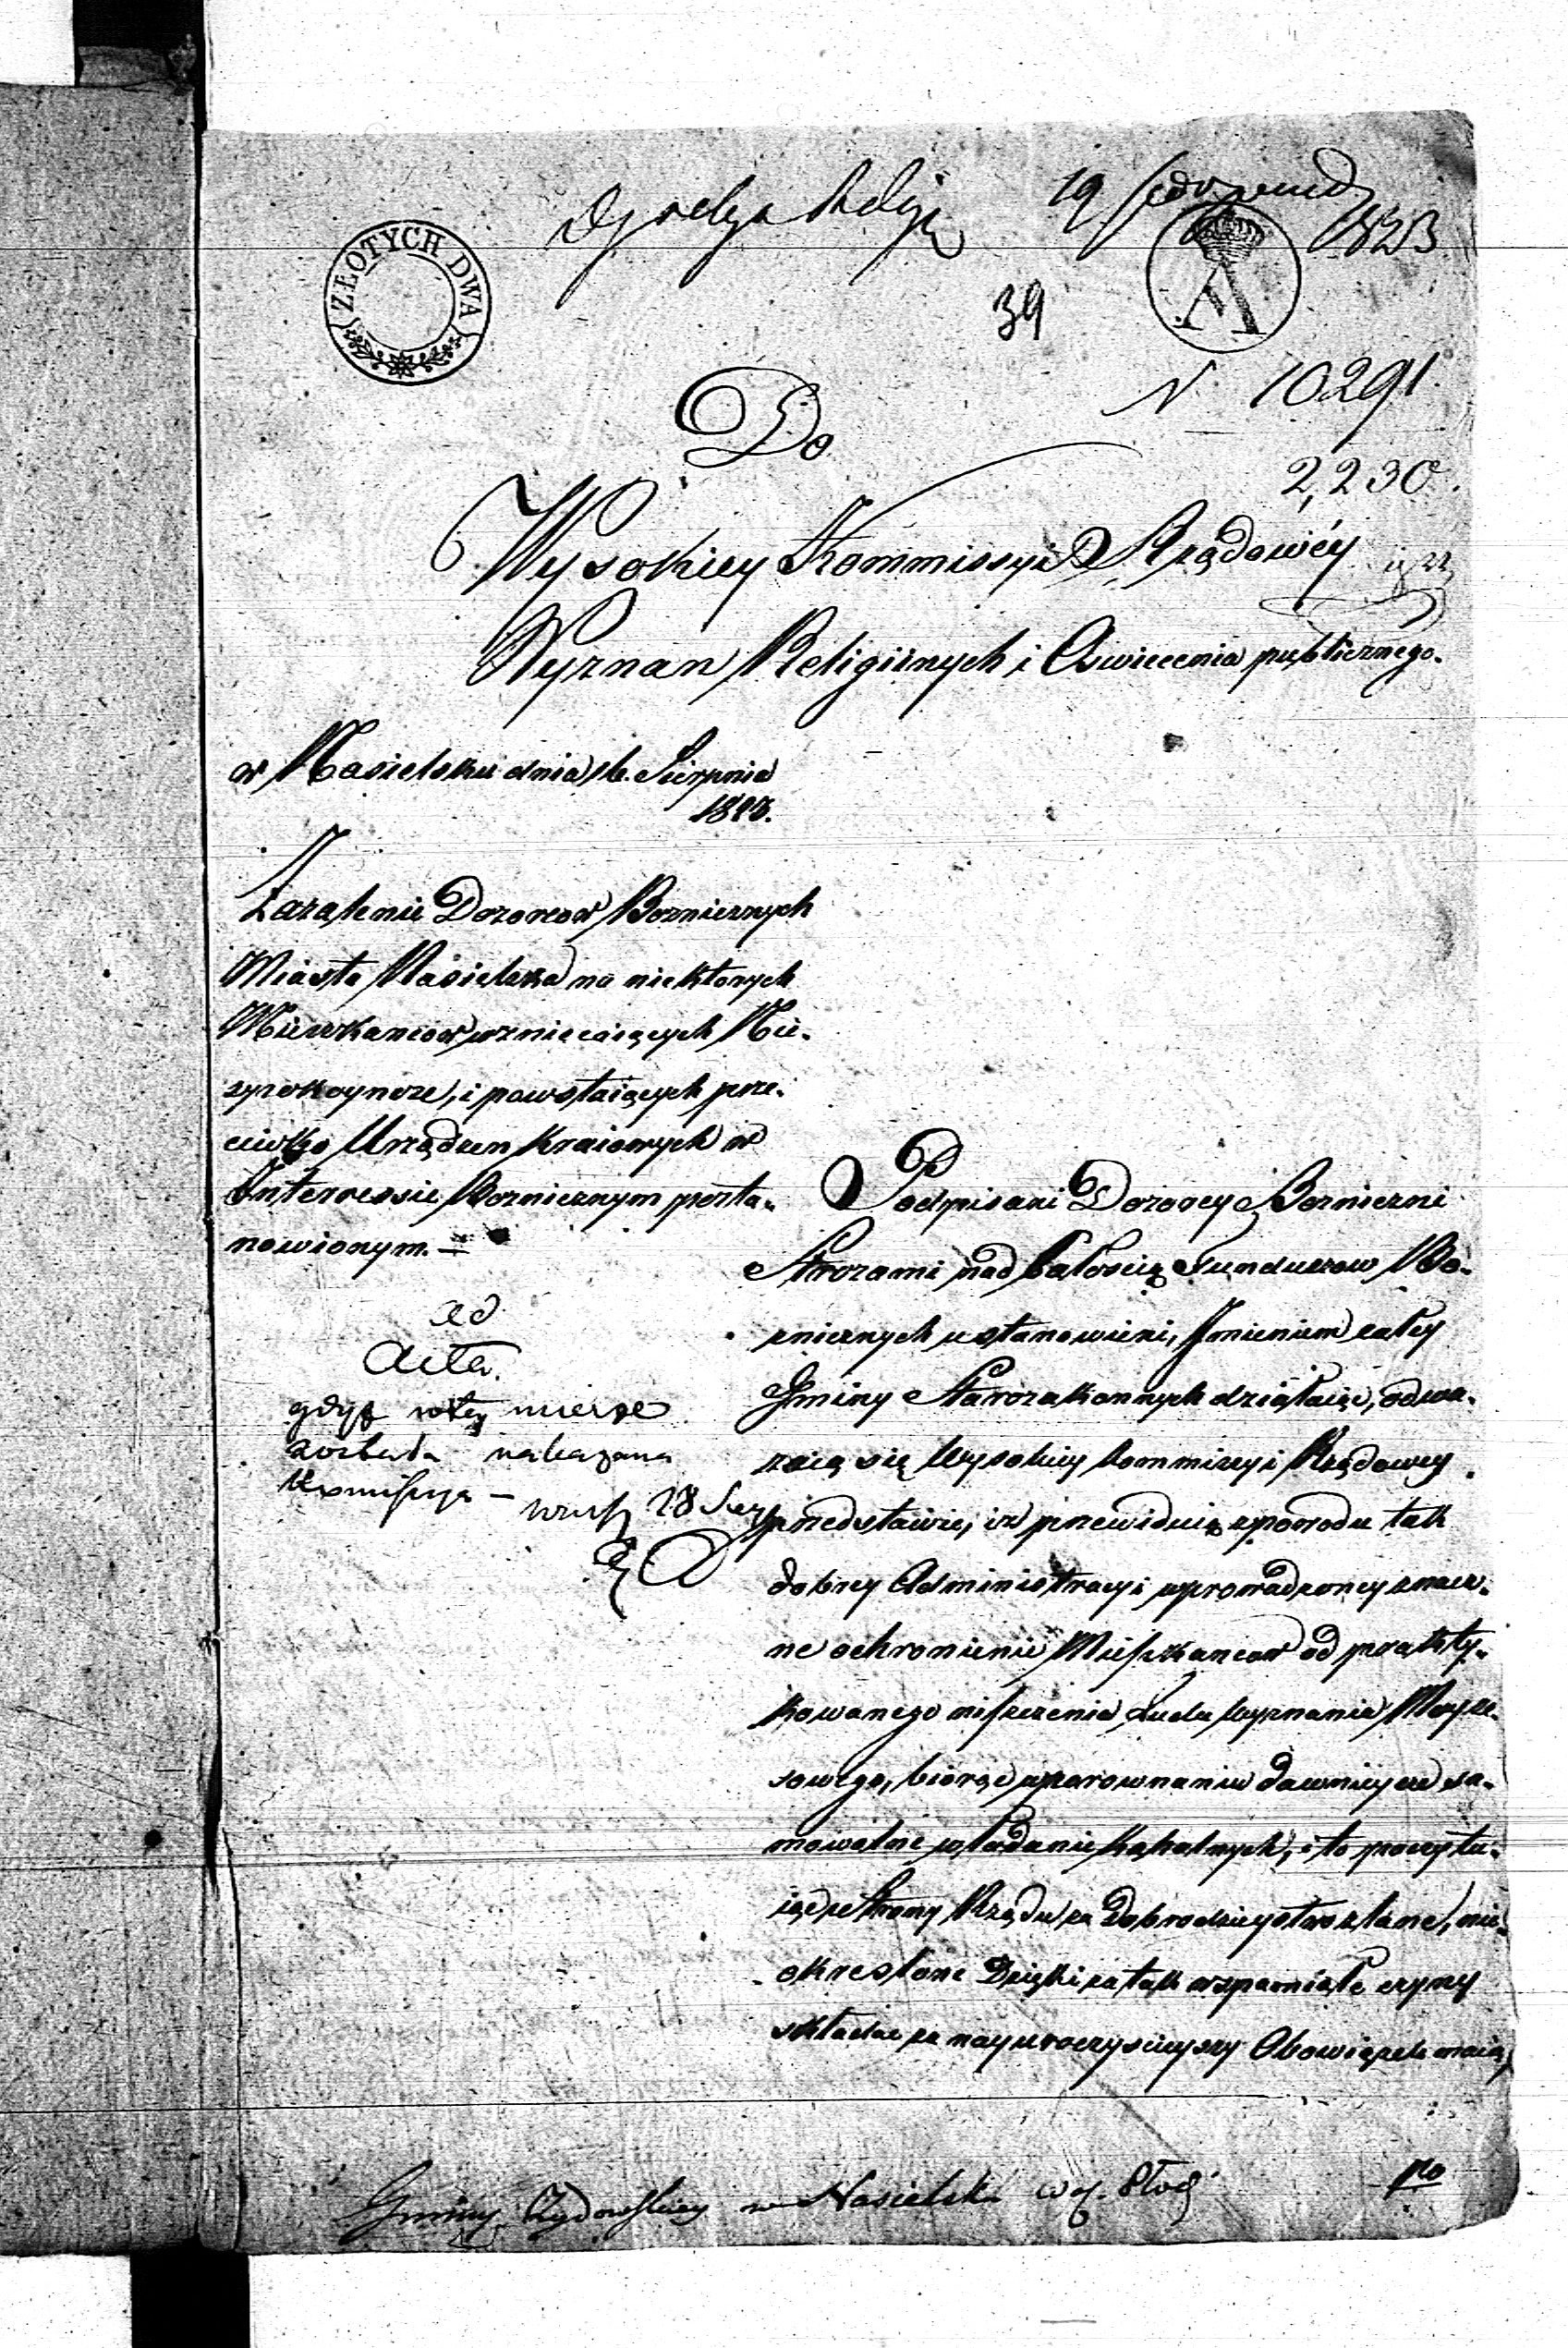 19
1823
ZŁOTYCH DWA
A
39
N. 10291.
Do
2,230
Wysokiey Kommissyi Rządowéy
Wyznan Religiinych i Oswiecenia publicznego.
w Nasielsku dnia 16. Sierpnia
1823.
Zażalenie Dozorcow Bozniczych
Miasta Nasielska na niektorych
Mieszkancow wzniecaiących Nie-
spokoynosc, i powstaiących prze-
ciwko Urządzen Kraiowych w
Interessie Bozniczym posta-
nowionym. —
ad
Acta.
gdyż w tey mierze
została nakazana
Kommissya —
28 Sier
Podpisani Dozorcy Bozniczni
Strozami nad Całoscią Funduszow Bo-
zniczych ustanowieni, Imieniem całey
Gminy Starozakonnych działaiąc, odwa-
zaią się Wysokiey Kommissyi Rządowey
przedstawić, iż przewiduiąc z powodu tak
dobrey Administracyi wprowadzoney znacz-
ne ochronienie Mieszkancow od prakty-
kowanego niszczenia Ludu Wyznania Moyże-
szowego, biorąc w porownaniu dawnieysze sa-
mowolne władanie Kahalnych, i to poczytu-
iąc ze Strony Rządu za Dobrodzieystwo zlane, nie-
okreslone Dzięki za tak wspaniałe czyny
składac za nayuroczyscieyszy Obowiązek maią,
po
Gminy Żydowskiey w Nasielsku w. Płoc